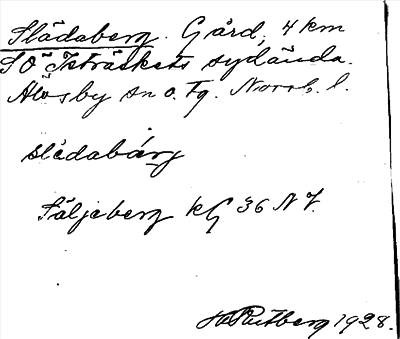 Slädaberg. Gård, 4 km
SO Isträskets sydända.
Älvsby sn o. Tg. Norrb. l.
slèdabárg
Säljeberg kG 36 NV.
H Rutberg 1928.